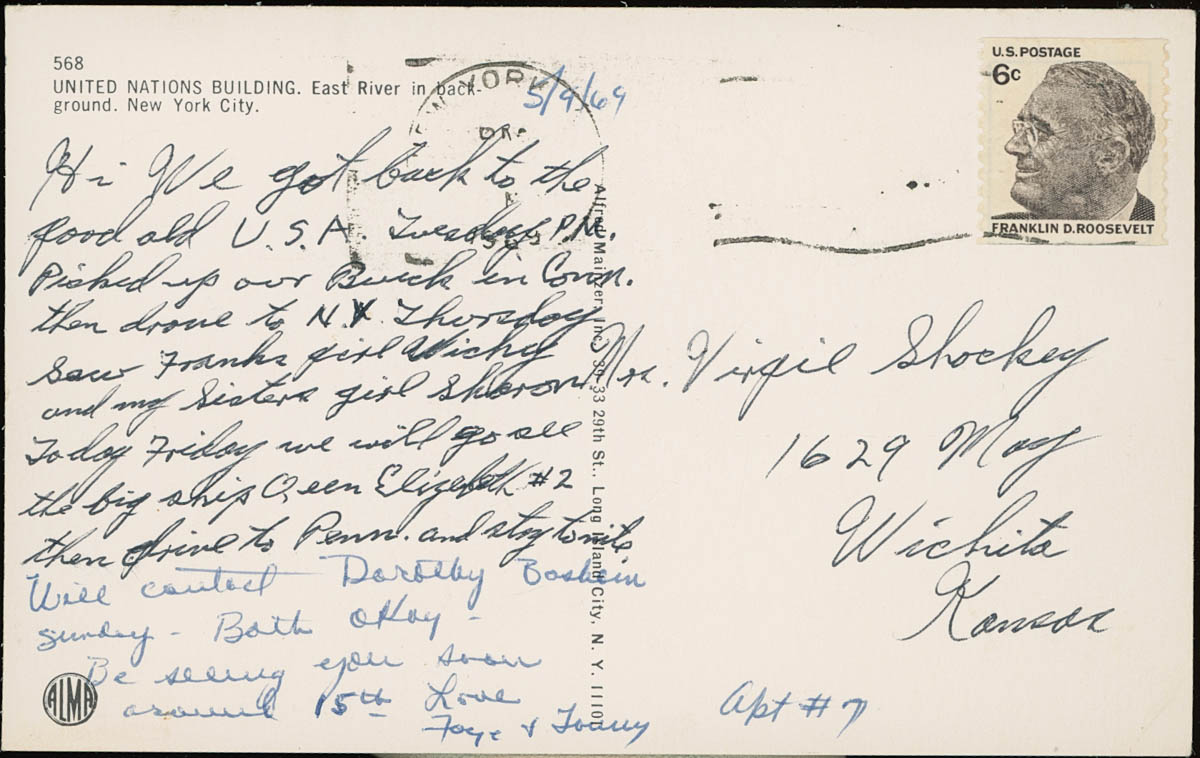 568
UNITED NATIONS BUILDING. East River in back-
ground. New York City.
5/9/69
U.S. POSTAGE
6c
FRANKLIN D. ROOSEVELT
Hi We got back to the
good old U.S.A. Tuesday P.M.
Picked up our Buick in Conn.
then drove to N.Y. Thursday
Saw Franks girl Vicky
and my Sisters girl Sharon
Today Friday we will go see
the big ship Queen Elizabeth #2
then drive to Penn. and stay tonite.
Will contact Dorothy
Sunday - Both okay -
Be seeing you soon
around 15th Love
Faye &
Mrs. Virgil Shockey
1629 May
Wichita
Kansas
Apt # 7
Alfred Mainzer, Inc., 39-33 29th St., Long Island City, N. Y. 11101
ALMA